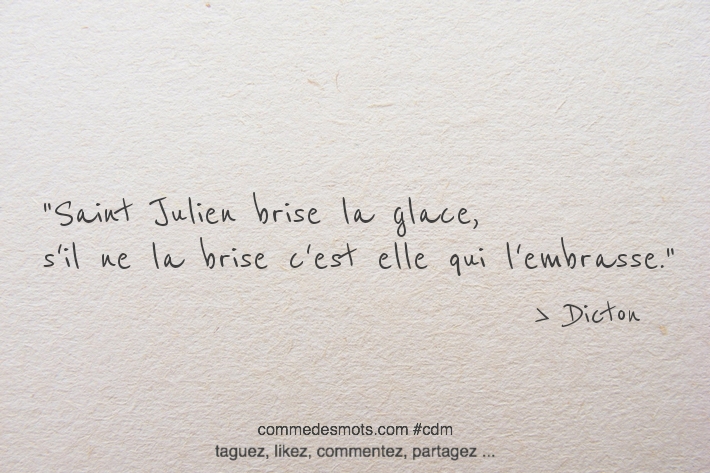 "Saint Julien brise la glace,
s'il ne la brise c'est elle qui l'embrasse."
> Dicton
commedesmots.com #cdm
taguez, likez, commentez, partagez ...